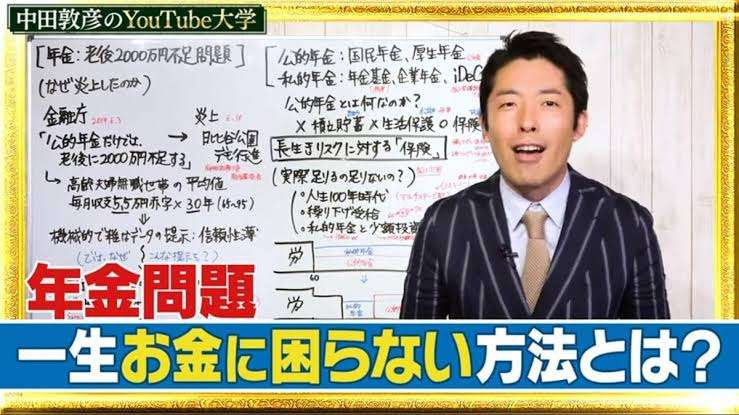 中田敦彦のYouTube大学
[年金:老後2000万円不足問題]
(なぜ炎上したのか)
金融庁 → 炎上
2019.6.3
「公的年金だけでは、
老後に2000万円不足する」
日比谷公園
デモ行進
↳ 高齢夫婦無職世帯の平均値
毎月収支5.5万円赤字×30年(65〜95)
機械的で雑なデータの提示:信頼性薄
(では、なぜこんな提示を?)
公的年金:国民年金、厚生年金
私的年金:年金基金、企業年金、iDeC
公的年金とは何なのか?
×積立貯蓄×生活保護○保険
長生きリスクに対する「保険」
(実際足りるの足りないの?)
・人生100年時代
・繰り下げ受給
・私的年金と少額投資
労
60
労
年金問題
一生お金に困らない方法とは?